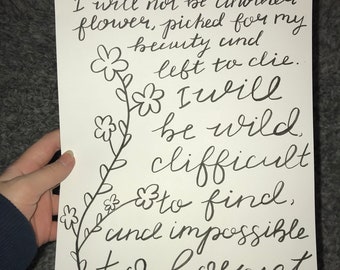 I will not be another
flower, picked for my
beauty and
left to die.
I will
be wild,
difficult
to find,
and impossible
to forget